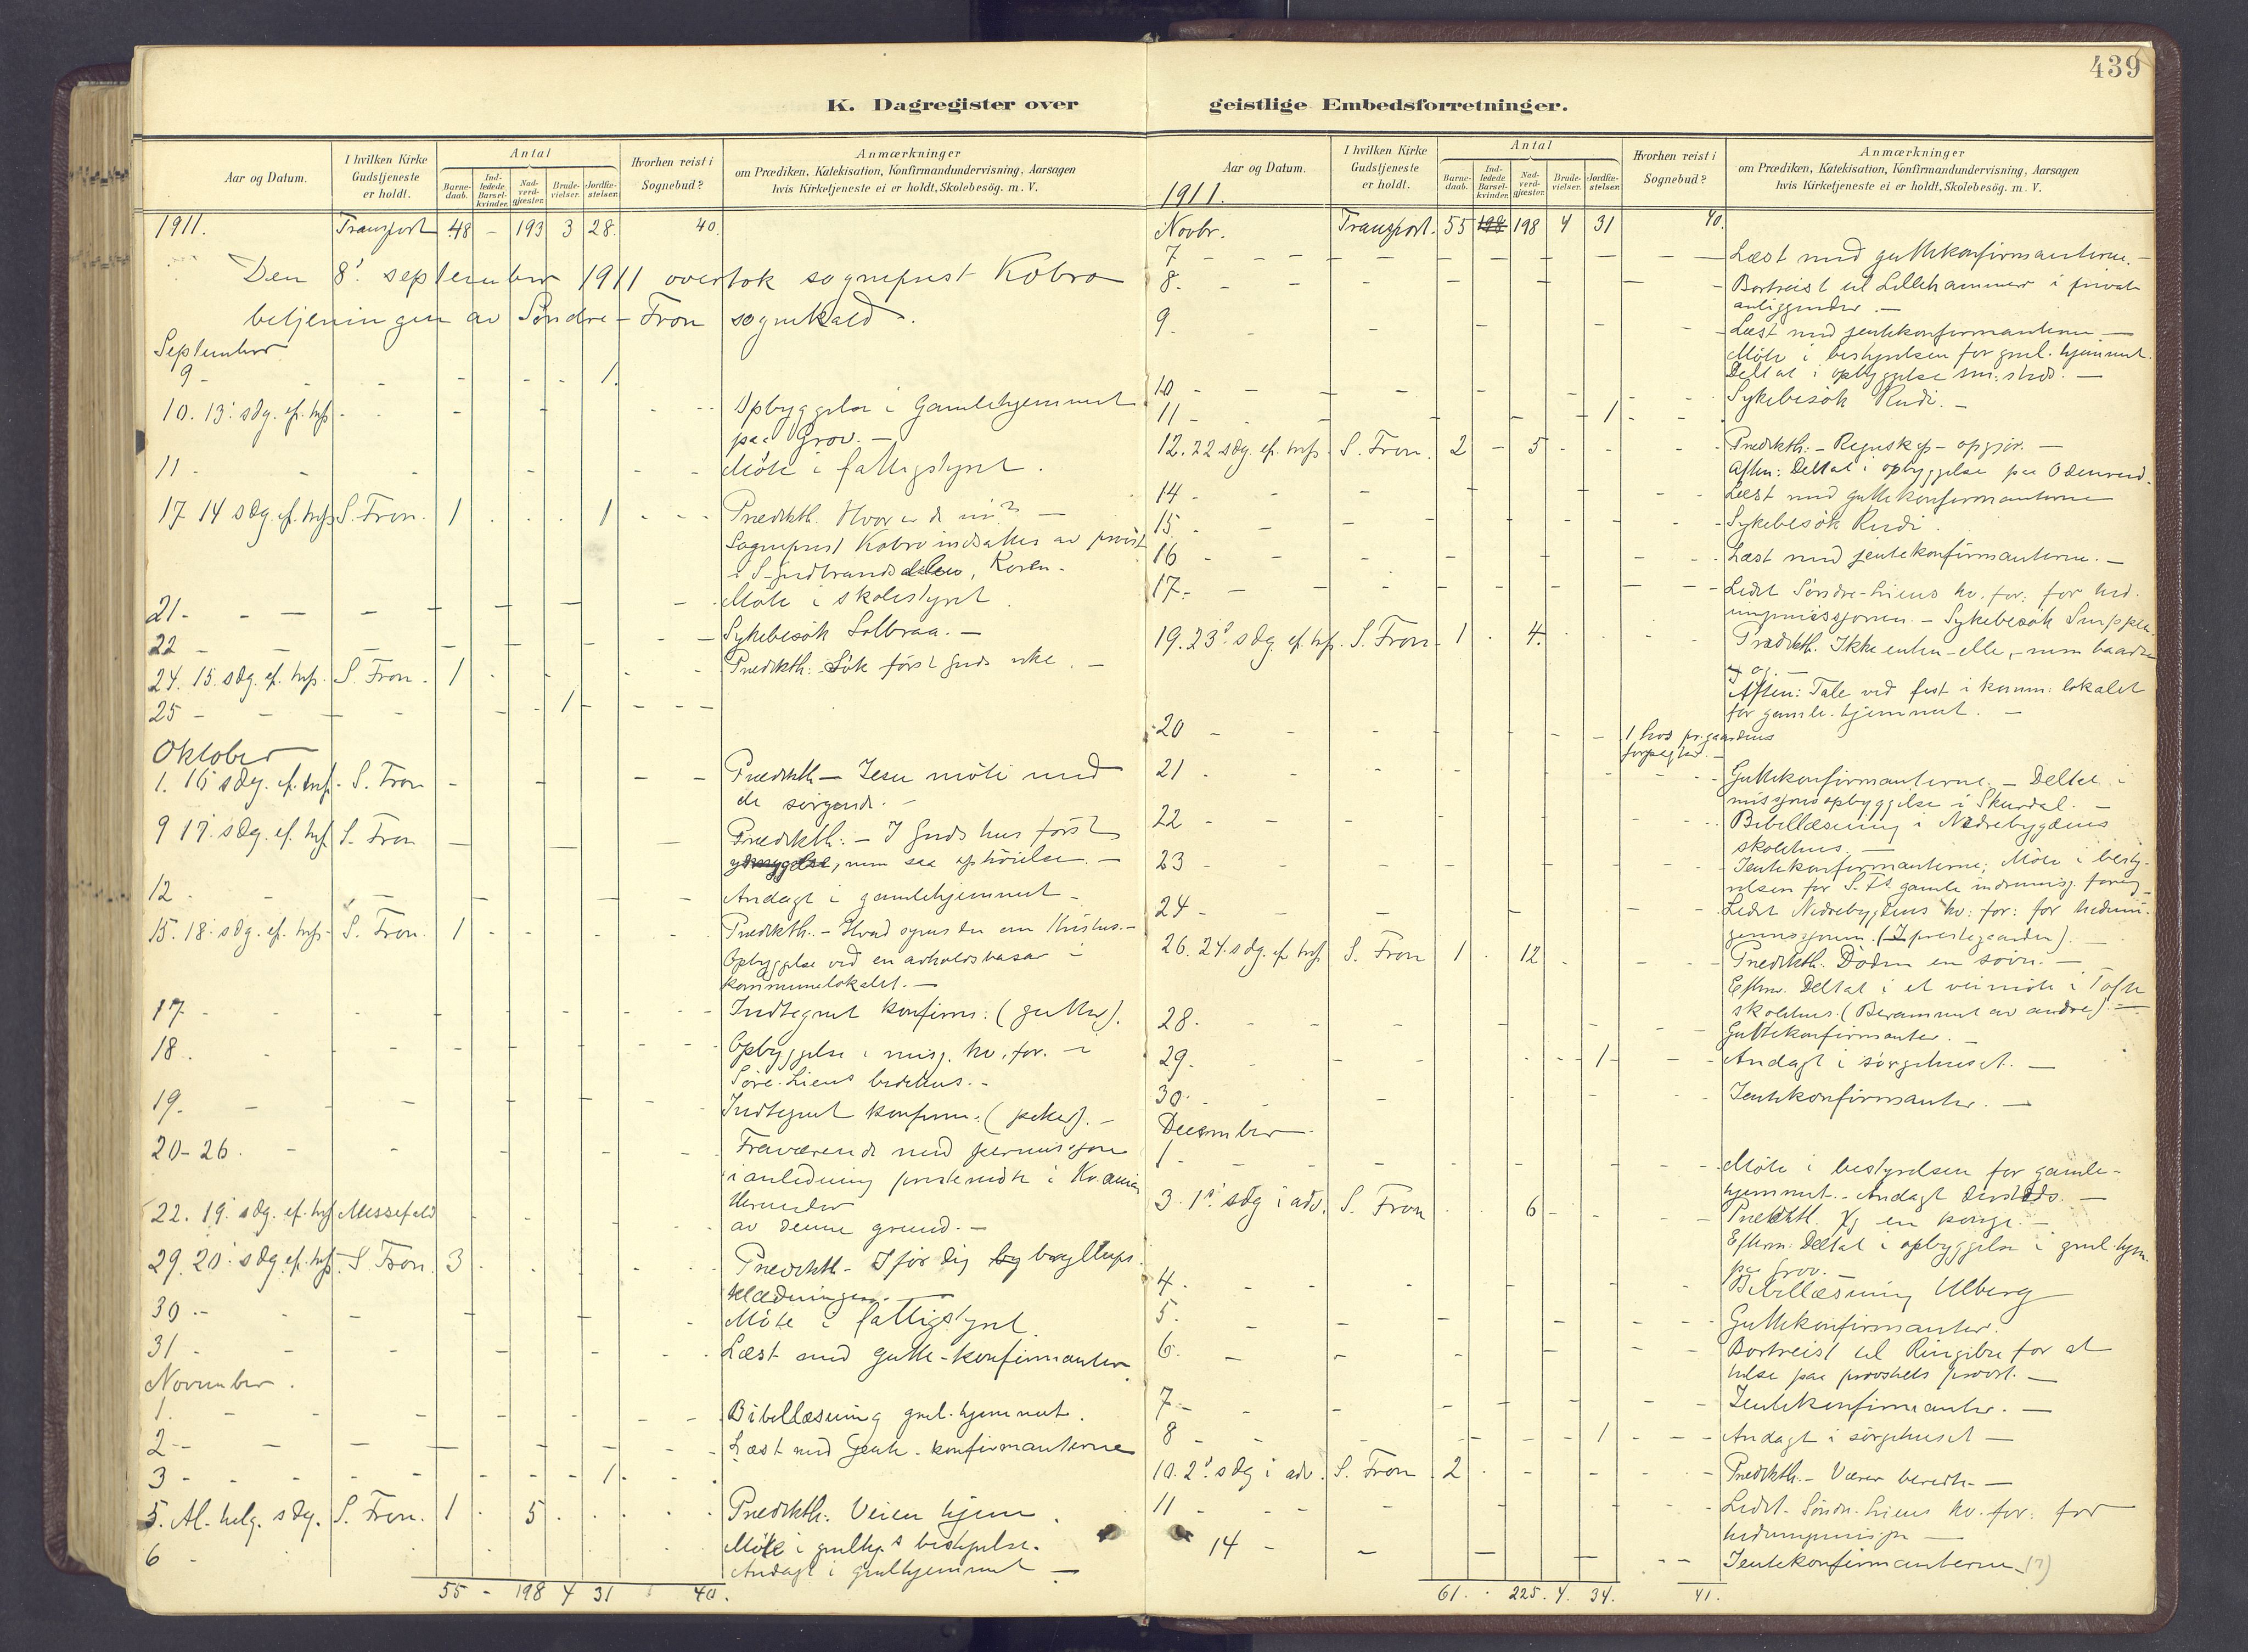 439
K. Dagregister over
Aar og Datum.
I hvilken Kirke
Gudstjeneste
er holdt.
Antal
Barne-
daab.
Ind-
ledede
Barsel-
kvinder.
Nad-
verd-
gjæster.
Brude-
vielser.
Jordfæ-
stelser.
Hvorhen reist i
Sognebud?
Anmærkninger
om Prædiken, Katekisation, Konfirmandundervisning, Aarsagen
hvis Kirketjeneste ei er holdt, Skolebesög. m. V.
1911. Transport 48 - 193 3 28. 40.
Den 8' september 1911 overtok sogneprest Kobro
betjeningen av Søndre-Fron sognekald.
September
9 - 1.
10. 13' sdg. ef. Opbyggelse i Gamlehjemmet
paa Grov. -
11 - Møte i fattigstyret.
17 14 sdg. ef. S. Fron. 1 1 Prædikth. Hvor er de ni? -
Sogneprest Kobro indsattes av provst
i S-Gudbrandsdalen, Koren.
21 - Møte i skolestyret.
22 - Sykebesøk Solbraa. -
24. 15. sdg. ef. S. Fron. 1 Prædikth: Søk først Guds rike. -
25 - 1
Oktober
1. 16 sdg. ef. S. Fron Prædikth - Jesu møte med
de sørgende. -
9 17. sdg. ef. S. Fron Prædikth: - I Guds hus først
ydmygelse, men saa ophøielse. -
12 - Andagt i gamlehjemmet -
15. 18. sdg. ef. S. Fron. 1 Prædikth. - Hvad synes du om Kristus. -
Opbyggelse ved en avholdsbasar i
kommunelokalet. -
17 - Indtegnet konfirm: (gutter).
18. Opbyggelse i misj. kv. for. i
Søre-Liens bedehus. -
19. Indtegnet konfirm: (piker). -
20-26. Fraværende med permissjon
i anledning prestemøte i Kr.ania
22. 19. sdg. ef. Messefald
av denne grund. -
29. 20' sdg. ef. S. Fron. 3 Prædikth - Ifør dig bryllups-
klædningen. -
30 - Møte i fattigstyret.
31 - Læst med gutte-konfirmanter.
November.
1. Bibellæsning gml. hjemmet.
2 - Læst med jente-konfirmanterne
3 - 1.
5. Al. helg. sdg. S. Fron. 1 5 Prædikth: Veien hjem.
6 - Møte i bestyrelse.
Andagt i gmlhjemmet -
55 - 198 4 31 40.
geistlige Embedsforretninger.
Aar og Datum.
I hvilken Kirke
Gudstjeneste
er holdt.
Antal
Barne-
daab.
Ind-
ledede
Barsel-
kvinder.
Nad-
verd-
gjæster.
Brude-
vielser.
Jordfæ-
stelser.
Hvorhen reist i
Sognebud?
Anmærkninger
om Prædiken, Katekisation, Konfirmandundervisning, Aarsagen
hvis Kirketjeneste ei er holdt, Skolebesög. m. V.
1911.
Novbr. Transport. 55 198 198 4 31 40.
7 - Læst med guttekonfirmanterne. -
8. - Bortreist til Lillehammer i privat
anliggender -
9 - Læst med jentekonfirmanterne -
Møte i bestyrelsen for gml. hjemmet.
Deltat i opbyggelse sm. steds. -
10 - Sykebesøk Rudi. -
11 - 1
12. 22 sdg. ef. S. Fron. 2 - 5 Prædikth: - Regnskaps-opgjør. -
Aften: Deltat i opbyggelse paa Odenrud.
14 - Læst med guttekonfirmanterne
15. - Sykebesøk Rudi.
16 - Læst med jentekonfirmanterne. -
17. - Ledet Søndre-Liens kv. for: for hed.
ningmissjonen. - Sykebesøk
19. 23' sdg. ef. S. Fron 1 4. Prædikth. Ikke enten-eller, - men baade
og. -
Aften: Tale ved fest i komm: lokalet
for gamle-hjemmet. -
20 - 1 hos pr.gaardens
forpagter. -
21 - Guttekonfirmanterne. - Deltat i
missjonsopbyggelse i Skurdal. -
22 - Bibellæsning i Nedrebygdens
skolehus. -
23 - Jentekonfirmanterne; Møte i besty-
relsen for S. Fr. gamle indremisj. foren.
24 - Ledet Nedrebygdens kv: for: for hednin-
(I prestegaarden). -
26. 24. sdg. ef. S. Fron 1 12 Prædikth. Døden en søvn. -
Efterm. Deltat i et veimøte i Tofte
skolehus. (Berammet av andre). -
28. Guttekonfirmanter. -
29. 1 - Andagt i sørgehuset. -
30. Jentekonfirmanter. -
December
1 - Møte i bestyrelsen for gamle-
hjemmet. - Andagt dersteds. -
3. 1' sdg i adv. S. Fron 6 Prædikth. en konge. -
Efterm. Deltat i opbyggelse i gml. hjem.
paa Grov. -
4. Bibellæsning Ulberg
5. Guttekonfirmanter.
6. Bortreist til Ringebu for at
hilse paa provst. -
7 - Jentekonfirmanter. -
8 - 1 - Andagt i sørgehuset -
10. 2' sdg i adv. S. Fron 2 Prædikth. -Værer beredte -
11 - Ledet Søndre-Liens kv. for: for
14 - Jentekonfirmanterne (?)
61. 225. 4. 34. 41.